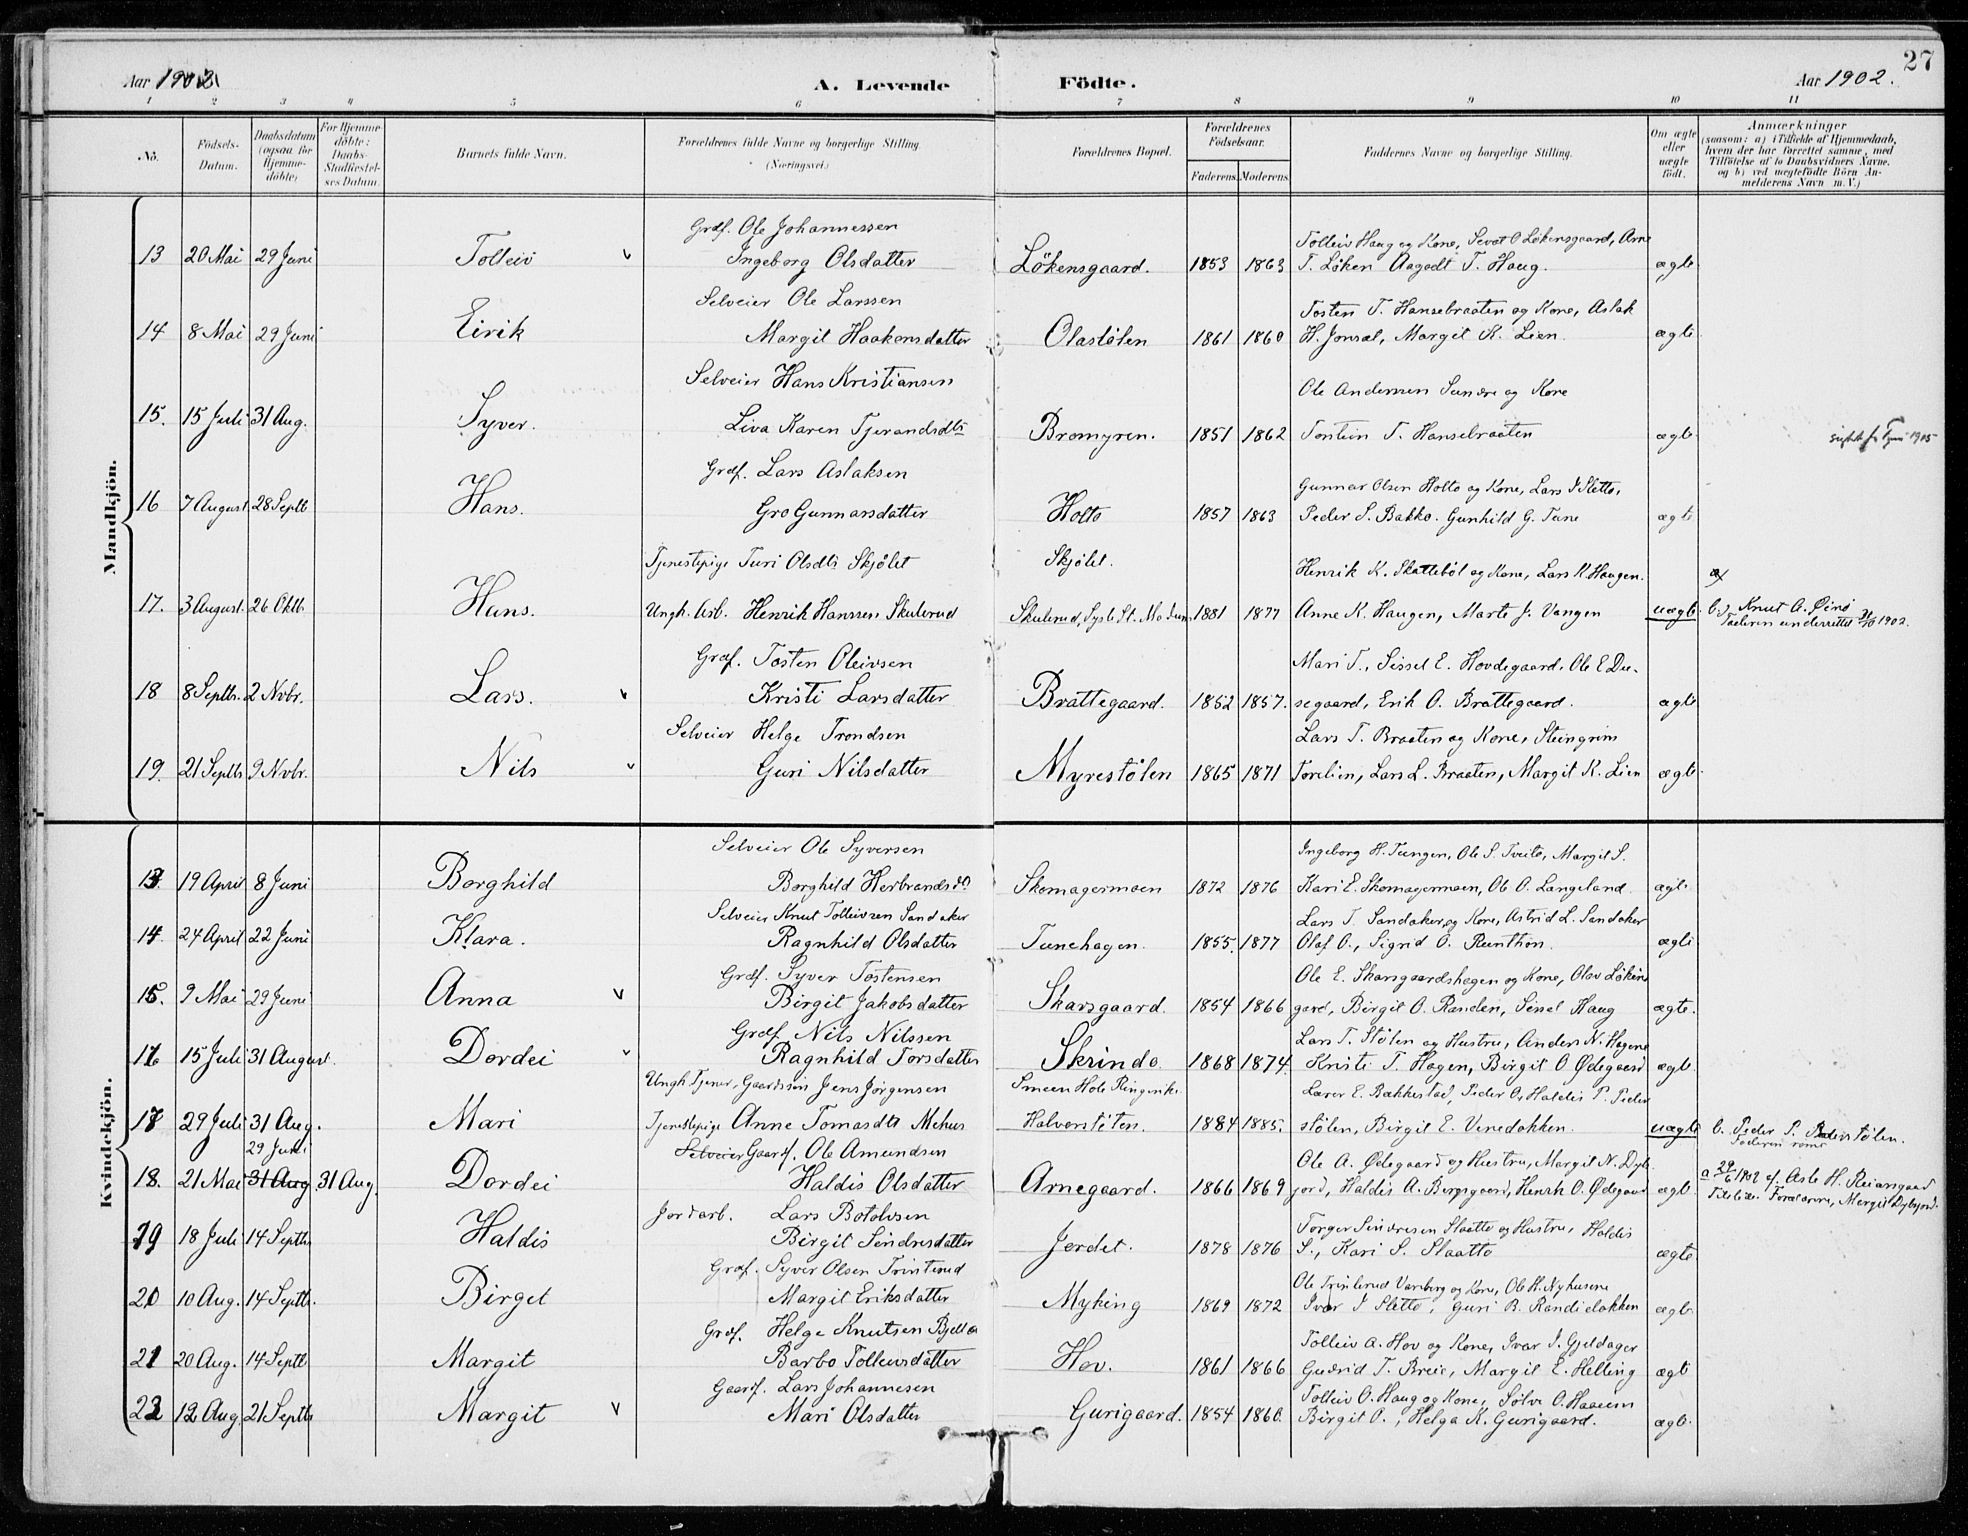 27
Aar 1902
A. Levende
Födte.
Aar 1902.
1 2 3 4 5 6 7 8 9 10 11
No.
Födsels-Datum.
Daabsdatum (ogsaa for Hjemme-döbte)
For Hjemme-döbte: Daabs-Stadfæstel-ses Datum
Barnets fulde Navn.
Forældrenes fulde Navne og borgerlige Stilling (Næringsvei.)
Forældrenes Bopæl.
Forældrenes Födselsaar.
Faderens. Moderens.
Faddernes Navne og borgerlige Stilling.
Om ægte eller uægte födt.
Anmærkninger (saasom: a) i Tilfælde af Hjemmedaab, hvem der har forrettet samme, med Tilföielse af to Daabsvidners Navne. og b) ved uægtefödte Börn An-melderens Navn m. V.)
Mandkjön.
Grdf. Ole Johannessen
Tolleiv Haug og Kone, Sevat O Lökensgaard, Arne
13 20 Mai 29 Juni Tolleiv Ingeborg Olsdatter Lökensgaard. 1853 1863 T. Löken Aagodt T. Haug. ægte
Selveier Ole Larssen
Tosten T. Hansebraaten og Kone, Aslak
14 8 Mai 29 Juni Eirik Margit Haakensdatter Olastölen 1861 1860 H. Jonsal, Margit K. Lien. ægte
Selveier Hans Kristiansen
Ole Andersen Sundre og Kone
15. 15 Juli 31 Aug. Syver. Liva Karen Tjerandsdt Bromyren. 1851 1862 Torstein T. Hansebraaten ægte
Grdf. Lars Aslaksen
Gunnar Olsen Holto og Kone, Lars J Sletto,
16 7 August. 28 Septb Hans. Gro Gunnarsdatter Holto 1857 1863 Peder S. Bakko. Gunhild G. Tune ægte
Tjenestepige Turi Olsdtr Skjölet Skjölet.
Henrik K. Skatteböl og Kone, Lars K. Haugen.
17. 3 August. 26 Oktb. Hans. Ungk. Arb. Henrik Hanssen Skulerud Skulerud, Sysle St. Modum 1881 1877 Anne K. Haugen, Marte J. Vangen uægte b. Knut A. Öino
Faderen underrettet 31/10 1902.
Grdf. Tosten Oleivsen
Mari T., Sissel E. Hovdegaard. Ole E De-
18 8 Septbr. 2 Nvbr. Lars. Kristi Larsdatter Brattegaard. 1852 1857. segaard, Erik O. Brattegaard. ægte
Selveier Helge Trondsen
Lars T. Braaten og Kone, Steingrim
19. 21 Septb 9 Nvbr. Nils Guri Nilsdatter Myrestölen 1865 1871 Torelien, Lars L. Braaten, Margit K. Lien ægte
Kvindekjön.
Selveier Ole Syversen
Ingeborg H. Tungen, Ole S. Tveito, Margit S.
13. 19 April 8 Juni Borghild Borghild Herbrandsd Skomagermoen 1872 1876 Kari E. Skomagermoen, Ole O. Langeland ægte
Selveier Knut Tolleivsen Sandaker
Lars T. Sandaker og Kone, Astrid L. Sandaker
14. 24 April 22 Juni Klara. Ragnhild Olsdatter Tunehagen. 1855. 1877 Olaf O., Sigrid O. Runthon. ægte
Grdf. Syver Tostensen
Ole E. Skarsgaardshagen og Kone, Olav Lökens
15. 9 Mai 29 Juni Anna Birgit Jakobsdatter Skarsgaard. 1854 1866 gard, Birgit O. Randen, Sissel Haug ægte.
Grdf. Nils Nilssen
Lars T. Stölen og Hustru, Anders N. Hagene
16 15 Juli 31 August. Dordei Ragnhild Torsdatter Skrindo. 1868 1874. Kristi T. Hagen, Birgit O Ödegaard ægte.
Ungk. Tjener, Gaardssön Jens Jörgensen Smeen Hole Ringerike
Larer E. Bakkestad, Peder O, Haldis P. Peder
17 29 Juli 31 Aug. Mari Tjenestepige Anne Tomasdtr Mehus Halverstölen. 1884 1885. stölen, Birgit E. Vinedokken. uægte b. Peder P. Pederstölen.
29 Juni Selveier Gaardf. Ole Amundsen
Ole A. Ödegaard og Hustru, Margit N. Dyb-
18. 21 Mai 31 Aug 31 Aug. Dordei Haldis Olsdatter Arnegaard. 1866 1869 jord, Haldis A. Bergsgaard, Henrik O. Ödegaard ægte a 29/6 1902 af Asle H. Reiarsgaard
Jordarb. Lars Botolvsen
Torger Sindresen Slaatto og Hustru, Haldis
19 18 Juli 14 Septb Haldis Birgit Sindresdatter Jordet. 1878 1876 S., Kari S. Slaatto ægte
Grdf. Syver Olsen Trinterud
Ole Trinterud Vanberg og Kone, Ole H. Nyhusene
20 10 Aug. 14 Septb. Birget Margit Eriksdatter Myking 1869 1872 Ivar J Sletto, Guri B. Randidokken ægte
Grdf. Helge Knutsen Bjella
Tolleiv A. Hov og Kone, Ivar I. Gjeldager
21 20 Aug. 14 Septb Margit Barbo Tolleivsdatter Hov. 1861 1866 Gudrid T. Breie, Margit E. Helling ægte
Gaardf. Lars Johannesen
Tolleiv O. Haug og Kone, Sölve O. Haaem
22 12 Aug. 21 Septb Margit Mari Olsdatter Gurigaard. 1854 1860. Birgit O., Helga K. Gurigaard. ægte.